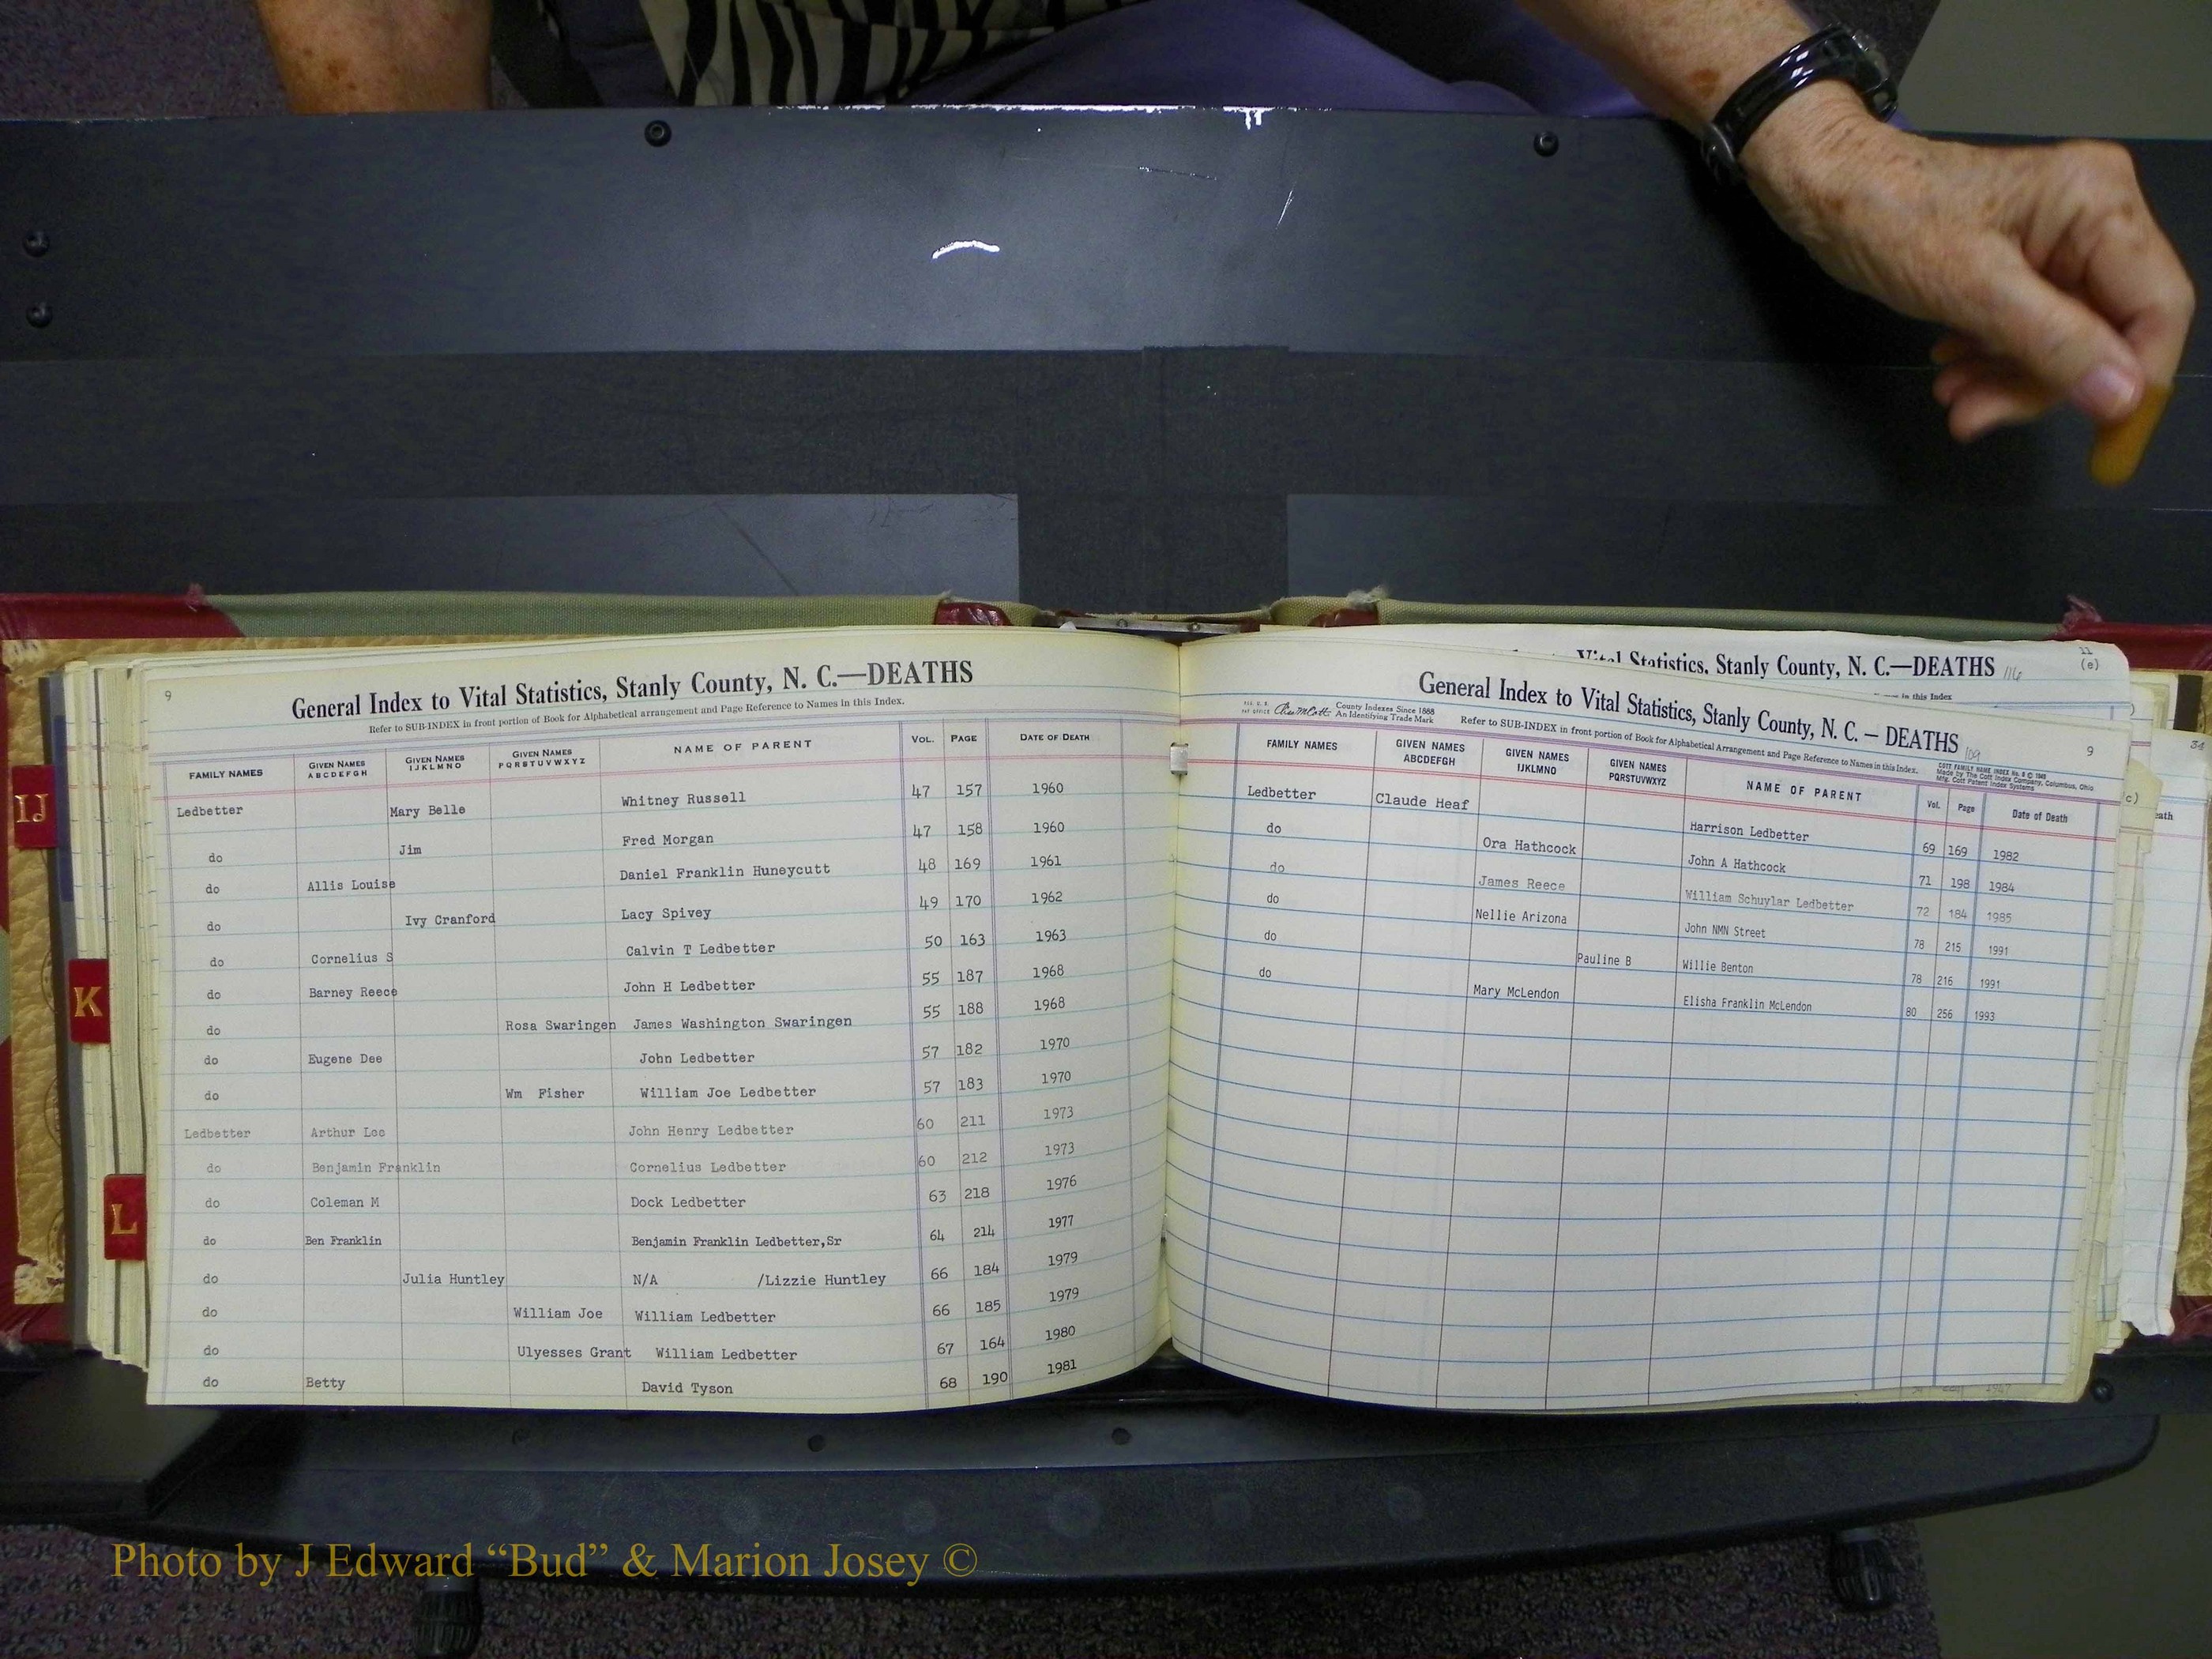 9
General Index to Vital Statistics, Stanly County, N. C.—DEATHS
Refer to SUB-INDEX in front portion of Book for Alphabetical arrangement and Page Reference to Names in this Index.
FAMILY NAMES GIVEN NAMES ABCDEFGH GIVEN NAMES IJKLMNO GIVEN NAMES PQRSTUVWXYZ NAME OF PARENT VOL. PAGE DATE OF DEATH
Ledbetter Mary Belle Whitney Russell 47 157 1960
do Jim Fred Morgan 47 158 1960
do Allis Louise Daniel Franklin Huneycutt 48 169 1961
do Ivy Cranford Lacy Spivey 49 170 1962
do Cornelius S Calvin T Ledbetter 50 163 1963
do Barney Reece John H Ledbetter 55 187 1968
do Rosa Swaringen James Washington Swaringen 55 188 1968
do Eugene Dee John Ledbetter 57 182 1970
do Wm Fisher William Joe Ledbetter 57 183 1970
Ledbetter Arthur Lee John Henry Ledbetter 60 211 1973
do Benjamin Franklin Cornelius Ledbetter 60 212 1973
do Coleman M Dock Ledbetter 63 218 1976
do Ben Franklin Benjamin Franklin Ledbetter,Sr 64 214 1977
do Julia Huntley N/A /Lizzie Huntley 66 184 1979
do William Joe William Ledbetter 66 185 1979
do Ulyesses Grant William Ledbetter 67 164 1980
do Betty David Tyson 68 190 1981
IJ
K
L
Vital Statistics, Stanly County, N. C.—DEATHS 116
11
(e)
in this Index
General Index to Vital Statistics, Stanly County, N. C. — DEATHS 109
9
County Indexes Since 1888
An Identifying Trade Mark
Refer to SUB-INDEX in front portion of Book for Alphabetical Arrangement and Page Reference to Names in this Index.
COTT FAMILY NAME INDEX No. 8 © 1948
Made by The Cott Index Company, Columbus, Ohio
Mfg. Cott Patent Index Systems
FAMILY NAMES GIVEN NAMES ABCDEFGH GIVEN NAMES IJKLMNO GIVEN NAMES PQRSTUVWXYZ NAME OF PARENT Vol. Page Date of Death
Ledbetter Claude Heaf Harrison Ledbetter 69 169 1982
do Ora Hathcock John A Hathcock 71 198 1984
do James Reece William Schuylar Ledbetter 72 184 1985
do Nellie Arizona John NMN Street 78 215 1991
do Pauline B Willie Benton 78 216 1991
do Mary McLendon Elisha Franklin McLendon 80 256 1993
34
c)
Photo by J Edward “Bud” & Marion Josey ©